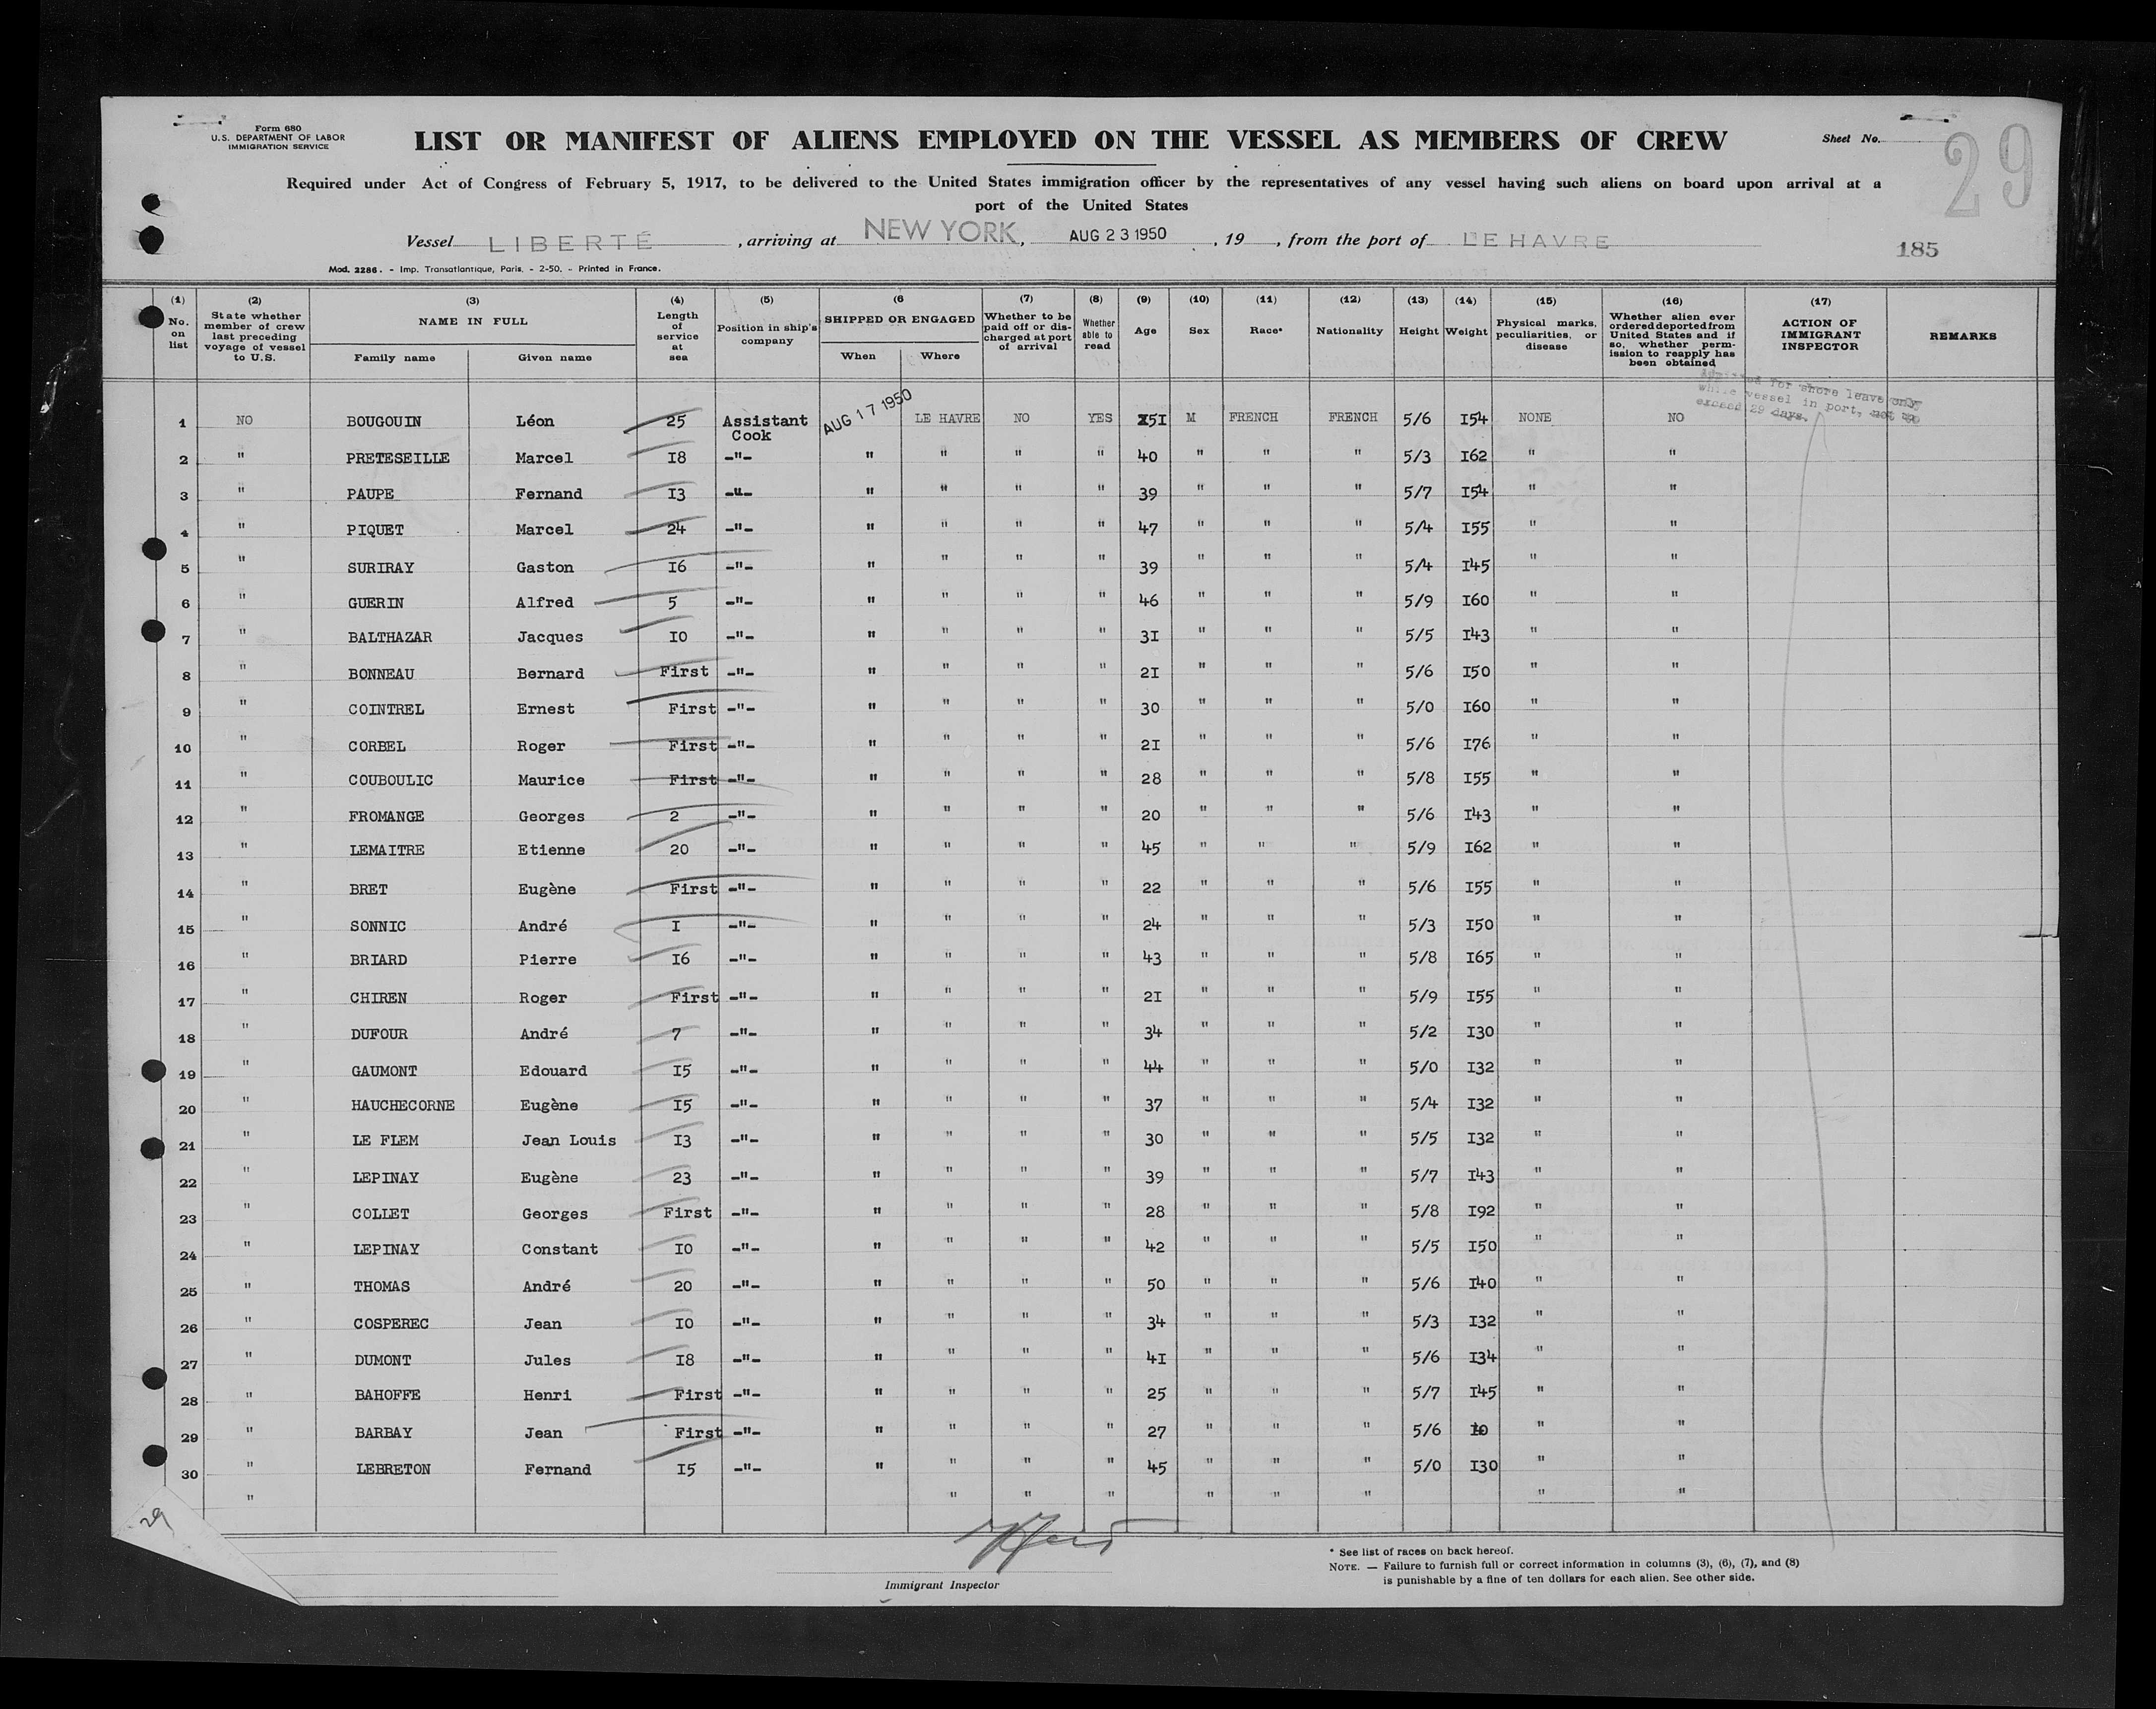 Form 680
U.S. DEPARTMENT OF LABOR
IMMIGRATION SERVICE
LIST OR MANIFEST OF ALIENS EMPLOYED ON THE VESSEL AS MEMBERS OF CREW
Sheet No. 29
Required under Act of Congress of February 5, 1917, to be delivered to the United States immigration officer by the representatives of any vessel having such aliens on board upon arrival at a
port of the United States
Vessel LIBERTÉ, arriving at NEW YORK, AUG 23 1950, 19 , from the port of LE HAVRE
185
Mod. 2286. - Imp. Transatlantique, Paris. - 2-50. - Printed in France.
(1) No. on list
(2) State whether member of crew last preceding voyage of vessel to U.S.
(3) NAME IN FULL Family name Given name
(4) Length of service at sea
(5) Position in ship's company
(6 SHIPPED OR ENGAGED When Where
(7) Whether to be paid off or discharged at port of arrival
(8) Whether able to read
(9) Age
(10) Sex
(11) Race*
(12) Nationality
(13) Height
(14) Weight
(15) Physical marks, peculiarities, or disease
(16) Whether alien ever ordered deported from United States and if so, whether permission to reapply has been obtained
(17) ACTION OF IMMIGRANT INSPECTOR
REMARKS
Admitted for shore leave only
while vessel in port, not to
exceed 29 days.
1 NO BOUGOUIN Léon 25 Assistant Cook AUG 17 1950 LE HAVRE NO YES 51 M FRENCH FRENCH 5/6 I54 NONE NO
2 " PRETESEILLE Marcel I8 -"- " " " " 40 " " " 5/3 I62 " "
3 " PAUPE Fernand I3 -"- " " " " 39 " " " 5/7 I54 " "
4 " PIQUET Marcel 24 -"- " " " " 47 " " " 5/4 I55 " "
5 " SURIRAY Gaston I6 -"- " " " " 39 " " " 5/4 I45 " "
6 " GUERIN Alfred 5 -"- " " " " 46 " " " 5/9 I60 " "
7 " BALTHAZAR Jacques I0 -"- " " " " 3I " " " 5/5 I43 " "
8 " BONNEAU Bernard First -"- " " " " 2I " " " 5/6 I50 " "
9 " COINTREL Ernest First -"- " " " " 30 " " " 5/0 I60 " "
10 " CORBEL Roger First -"- " " " " 2I " " " 5/6 I76 " "
11 " COUBOULIC Maurice First -"- " " " " 28 " " " 5/8 I55 " "
12 " FROMANGE Georges 2 -"- " " " " 20 " " " 5/6 I43 " "
13 " LEMAITRE Etienne 20 -"- " " " " 45 " " " 5/9 I62 " "
14 " BRET Eugène First -"- " " " " 22 " " " 5/6 I55 " "
15 " SONNIC André I -"- " " " " 24 " " " 5/3 I50 " "
16 " BRIARD Pierre I6 -"- " " " " 43 " " " 5/8 I65 " "
17 " CHIREN Roger First -"- " " " " 2I " " " 5/9 I55 " "
18 " DUFOUR André 7 -"- " " " " 34 " " " 5/2 I30 " "
19 " GAUMONT Edouard I5 -"- " " " " 44 " " " 5/0 I32 " "
20 " HAUCHECORNE Eugène I5 -"- " " " " 37 " " " 5/4 I32 " "
21 " LE FLEM Jean Louis I3 -"- " " " " 30 " " " 5/5 I32 " "
22 " LEPINAY Eugène 23 -"- " " " " 39 " " " 5/7 I43 " "
23 " COLLET Georges First -"- " " " " 28 " " " 5/8 I92 " "
24 " LEPINAY Constant I0 -"- " " " " 42 " " " 5/5 I50 " "
25 " THOMAS André 20 -"- " " " " 50 " " " 5/6 I40 " "
26 " COSPEREC Jean I0 -"- " " " " 34 " " " 5/3 I32 " "
27 " DUMONT Jules I8 -"- " " " " 4I " " " 5/6 I34 " "
28 " BAHOFFE Henri First -"- " " " " 25 " " " 5/7 I45 " "
29 " BARBAY Jean First -"- " " " " 27 " " " 5/6 " "
30 " LEBRETON Fernand I5 -"- " " " " 45 " " " 5/0 I30 " "
" " " " " " " " "
29
Immigrant Inspector
* See list of races on back hereof.
NOTE. — Failure to furnish full or correct information in columns (3), (6), (7), and (8)
is punishable by a fine of ten dollars for each alien. See other side.